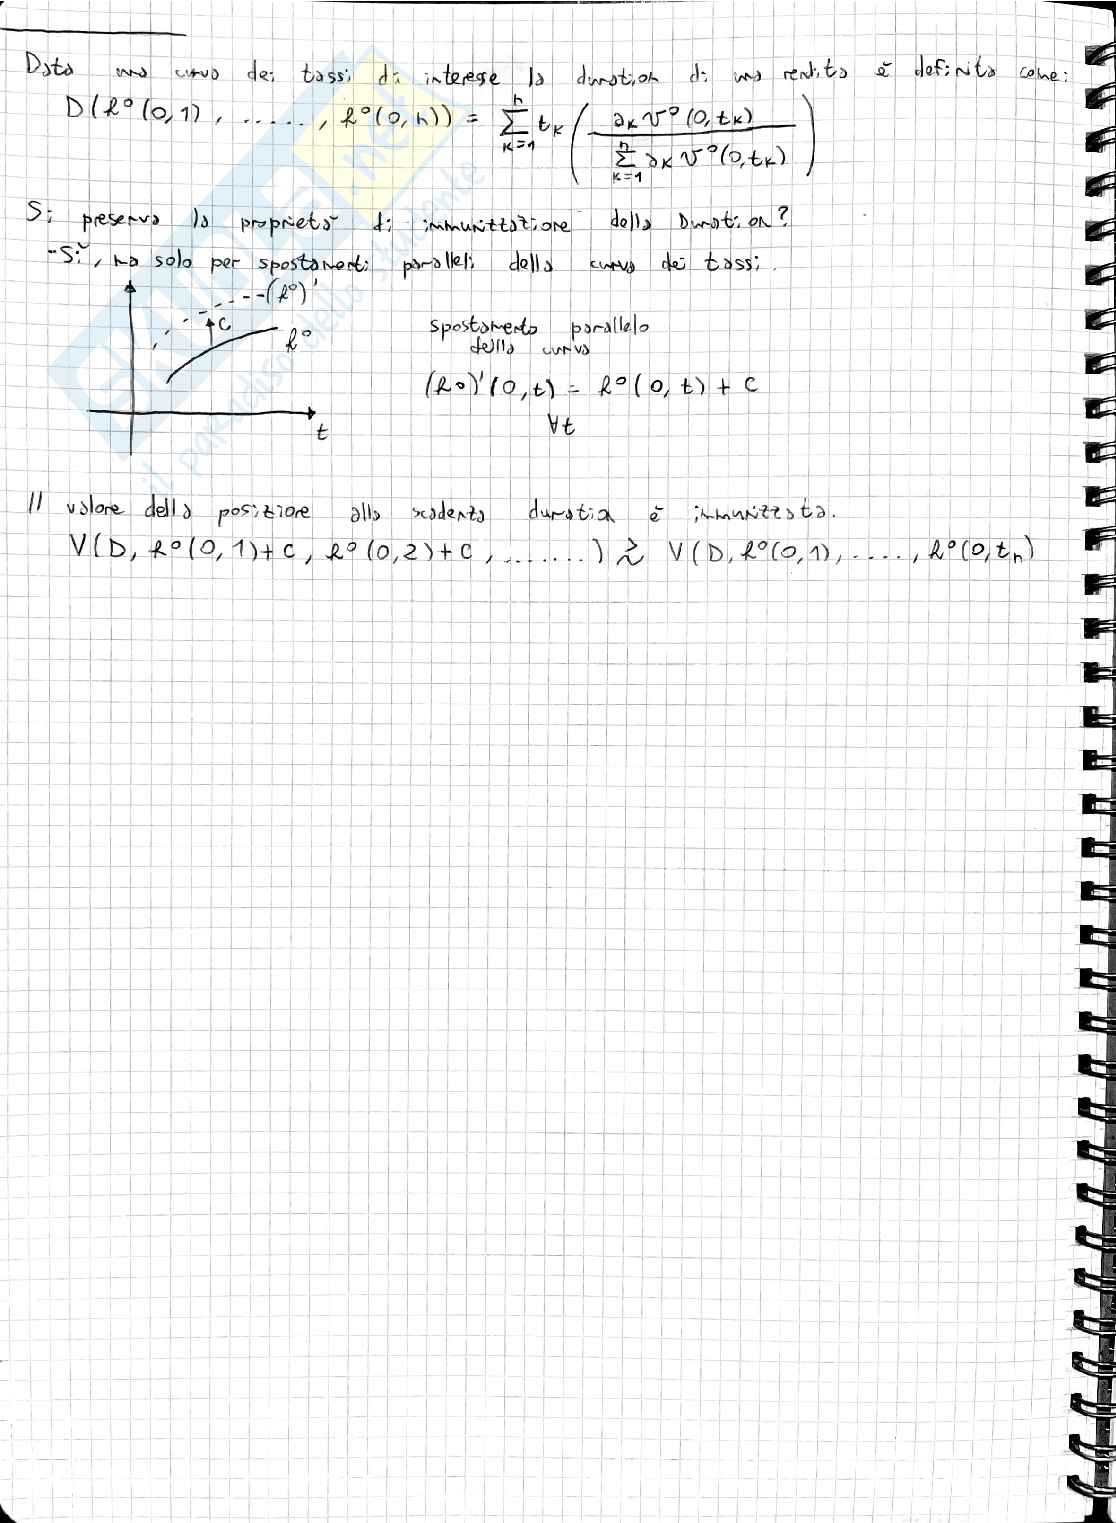 Data una curva dei tassi di interesse la duration di una rendita è definita come:
D(h°(0,1), ......, h°(0,n)) = \sum_{k=1}^{n} t_k ( \frac{a_k v°(0,t_k)}{\sum_{k=1}^{n} a_k v°(0,t_k)} )
Si preserva la proprietà di immunizzazione della Duration?
-Sì, ma solo per spostamenti paralleli della curva dei tassi.
(h°)'
c
h°
t
spostamento parallelo
della curva
(h°)'(0,t) = h°(0,t) + c
∀t
Il valore della posizione alla scadenza duration è immunizzata.
V(D, h°(0,1)+c, h°(0,2)+c, .......) ≳ V(D, h°(0,1), ....., h°(0,t_n)
SKUOLA.net
il paradiso dello studente